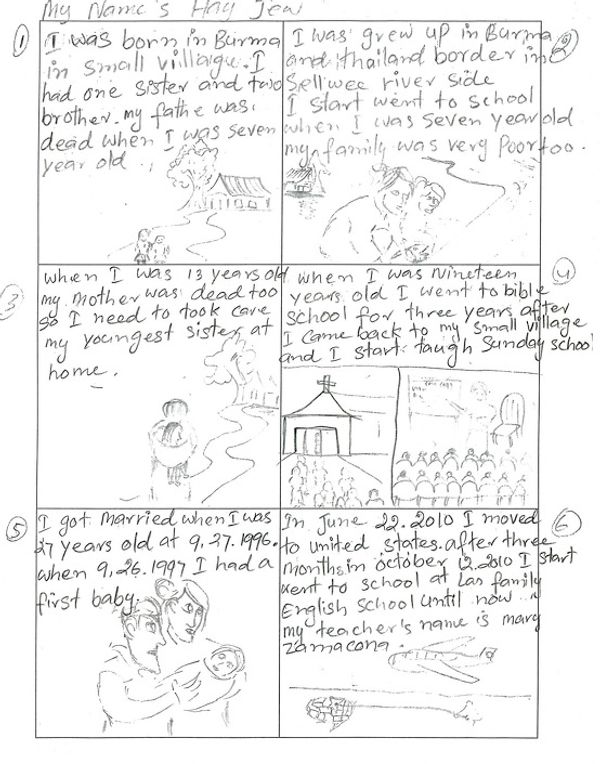 My Name's Hay Jew
1
I was born in Burma
in small village. I
had one sister and two
brother. my fathe was
dead when I was seven
year old
2
I was grew up in Burma
and thailand border in
Sellwee river side
I start went to school
when I was seven year old
my family was very Poor too.
3
when I was 13 years old
my mother was dead too
so I need to took care
my youngest sister at
home.
4
when I was Nineteen
years old I went to bible
school for three years after
I came back to my small village
and I start taugh Sunday school
5
I got married when I was
27 years old at 9,27.1996.
when 9,26.1997 I had a
first baby.
6
In June 22.2010 I moved
to united states. after three
months, in october 12.2010 I start
went to school at Las family
English school until now
my teacher's name is mary
zamacona.